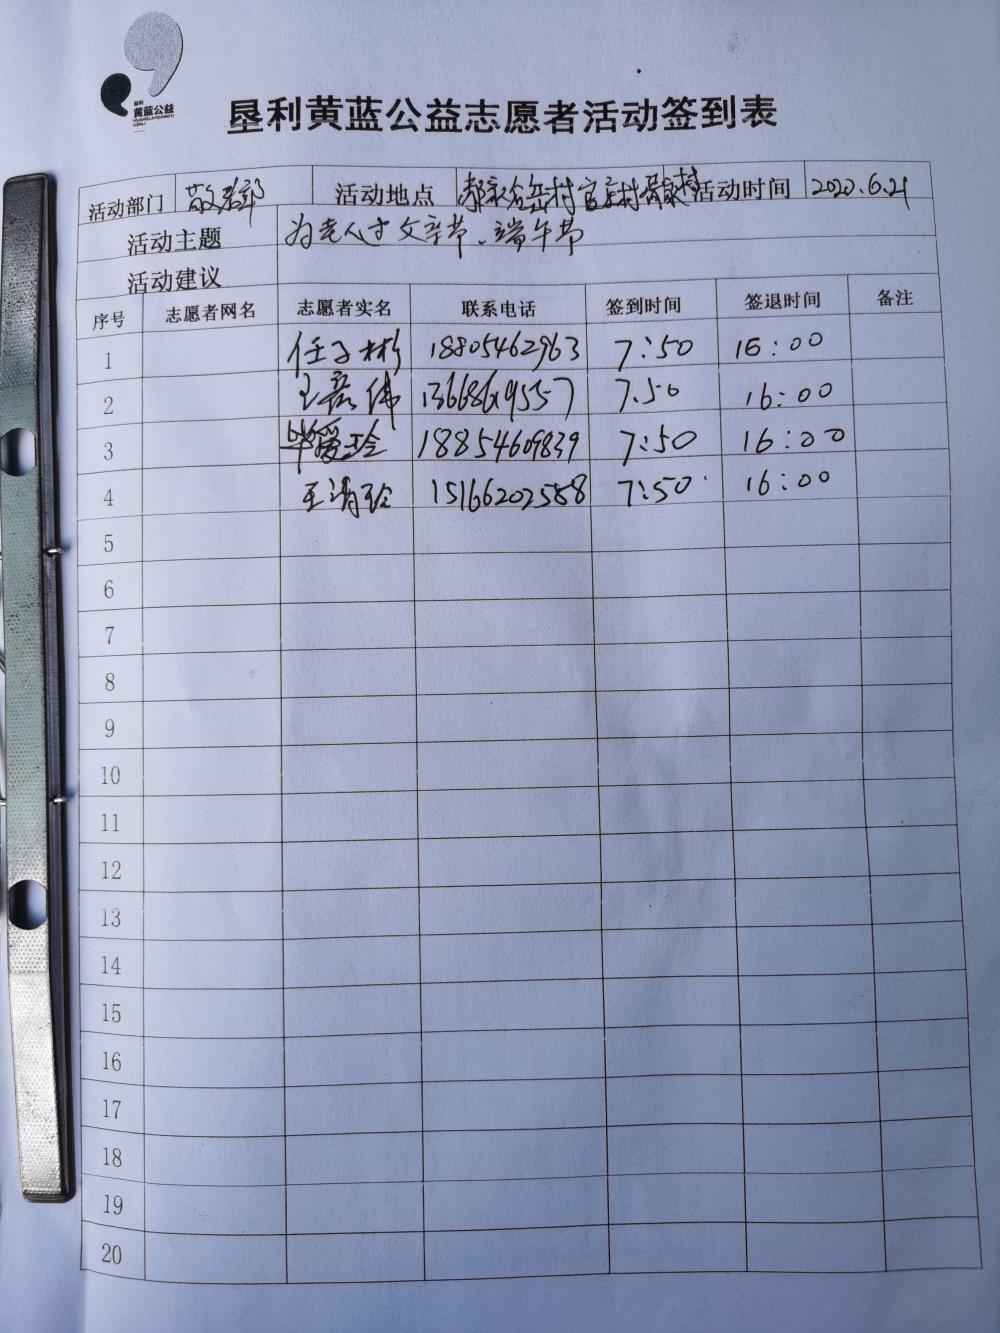 垦利
黄蓝公益
HUANGLANGONGYI
KENLI
垦利黄蓝公益志愿者活动签到表
活动部门 敬老部 活动地点 村 村 村 活动时间 2020.6.21
活动主题 为老人过父亲节、端午节
活动建议
序号 志愿者网名 志愿者实名 联系电话 签到时间 签退时间 备注
1 任子彬 18805462963 7:50 16:00
2 王彦伟 13668619557 7.50 16:00
3 毕爱玲 18854609839 7:50 16:00
4 王清玲 15166202558 7:50 16:00
5
6
7
8
9
10
11
12
13
14
15
16
17
18
19
20